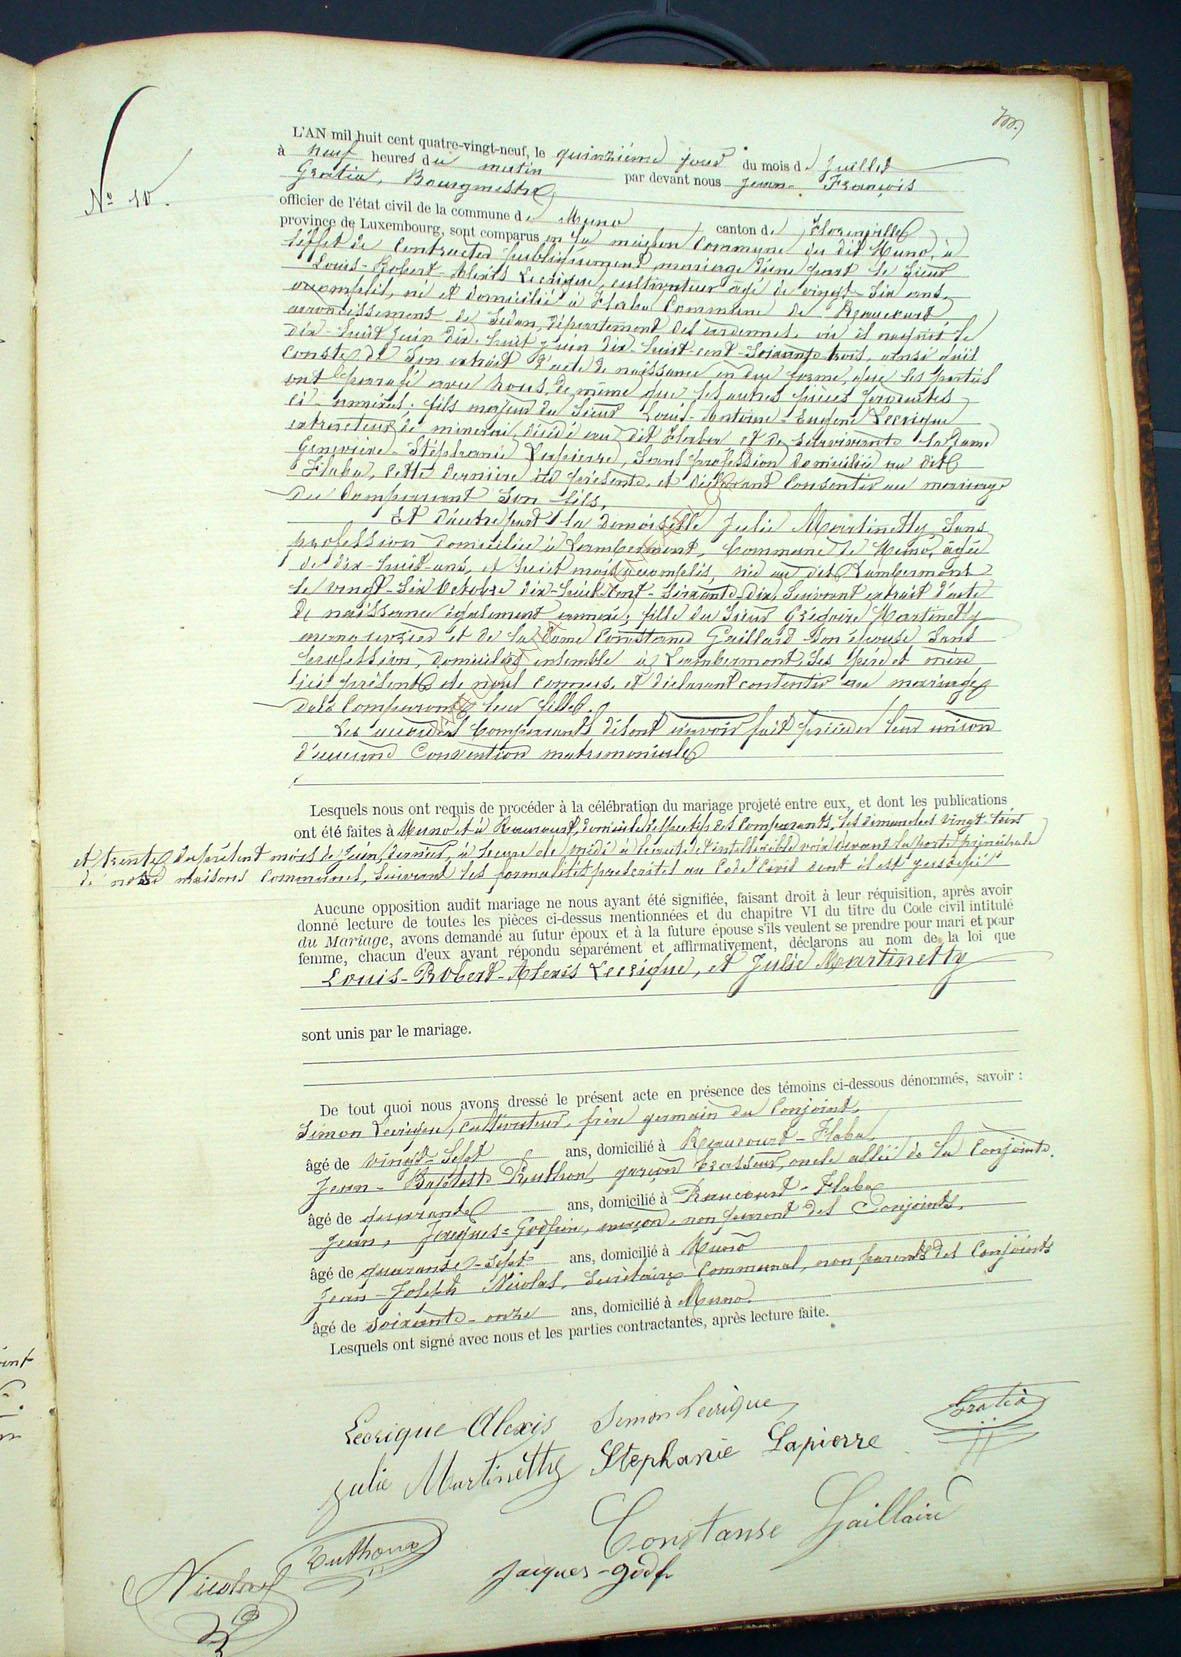 N° 10.
L'AN mil huit cent quatre-vingt-neuf, le quinzième jour du mois de Juillet
à neuf heures du matin par devant nous Jean-François
Gratia, Bourgmestre
officier de l'état civil de la commune de Muno canton de Florenville
province de Luxembourg, sont comparus en la maison Commune du dit Muno, à
l'effet de Contracter publiquement mariage d'une part le Sieur
Louis-Robert-Alexis Lecrique, cultivateur agé de vingt-six ans
accomplis, né et domicilié à Flaba Commune de Raucourt
arrondissement de Sedan, département des ardennes, où il naquit le
dix-huit Juin dix-huit Juin dix-huit-cent-Soixante trois, ainsi qu'il
Conste de son extrait d'acte de naissance en due forme, que les parties
ont paraphé avec nous, de même que les autres pièces produites
ci-annexées, fils majeur du Sieur Louis-Antoine-Eugène Lecrique
extracteur de minerai, décédé au dit Flaba et de survivante la Dame
Geneviève-Stéphanie Lapierre, Sans profession domiciliée au dit
Flaba, cette dernière ici présente, et déclarant Consentir au mariage
du Comparant Son fils.
Et d'autre part la demoiselle Julie Martinetty, Sans
profession domiciliée à Lambermont, Commune de Muno, âgée
de dix-huit-ans, et huit mois accomplis, née au dit Lambermont
le vingt-six Octobre dix-huit cent-Soixante-dix, Suivant extrait d'acte
de naissance également annexé; fille du Sieur Grégoire Martinetty
menuisier et de la Dame Constance Gaillard Son épouse Sans
profession, domiciliés ensemble à Lambermont, Ses père et mère
ici présents de nous Connus, et déclarant consentir au mariage
de la Comparante leur fille.
Les Comparants disent n'avoir fait précéder leur union
d'aucune Convention matrimoniale
Lesquels nous ont requis de procéder à la célébration du mariage projeté entre eux, et dont les publications
ont été faites à Muno et à Raucourt, domiciles respectifs des Comparants, les dimanches vingt trois
et trente du présent mois de Juin dernier, à heure de midi à haute et intelligible voix devant la porte principale
de nos maisons Communes, Suivant les formalités prescrites au Code Civil dont il est justifié.
Aucune opposition audit mariage ne nous ayant été signifiée, faisant droit à leur réquisition, après avoir
donné lecture de toutes les pièces ci-dessus mentionnées et du chapitre VI du titre du Code civil intitulé
du Mariage, avons demandé au futur époux et à la future épouse s'ils veulent se prendre pour mari et pour
femme, chacun d'eux ayant répondu séparément et affirmativement, déclarons au nom de la loi que
Louis-Robert-Alexis Lecrique, et Julie Martinetty
sont unis par le mariage.
De tout quoi nous avons dressé le présent acte en présence des témoins ci-dessous dénommés, savoir :
Simon Lecrique, Cultivateur, frère germain du Conjoint,
âgé de vingt-sept ans, domicilié à Raucourt-Flaba,
Jean-Baptiste Ruthon, garçon brasseur, oncle allié de la Conjointe.
âgé de quarante ans, domicilié à Raucourt-Flaba
Jean, Jacques-Godfrin, maçon, non parent des Conjoints,
âgé de quarante-sept ans, domicilié à Muno
Jean-Joseph Nicolas, Secrétaire Communal, non parent des Conjoints
âgé de soixante-onze ans, domicilié à Muno.
Lesquels ont signé avec nous et les parties contractantes, après lecture faite.
Lecrique Alexis Simon Lecrique Gratia
Julie Martinetty Stephanie Lapierre
Constanse Gaillard
Nicolas Jacques-godf